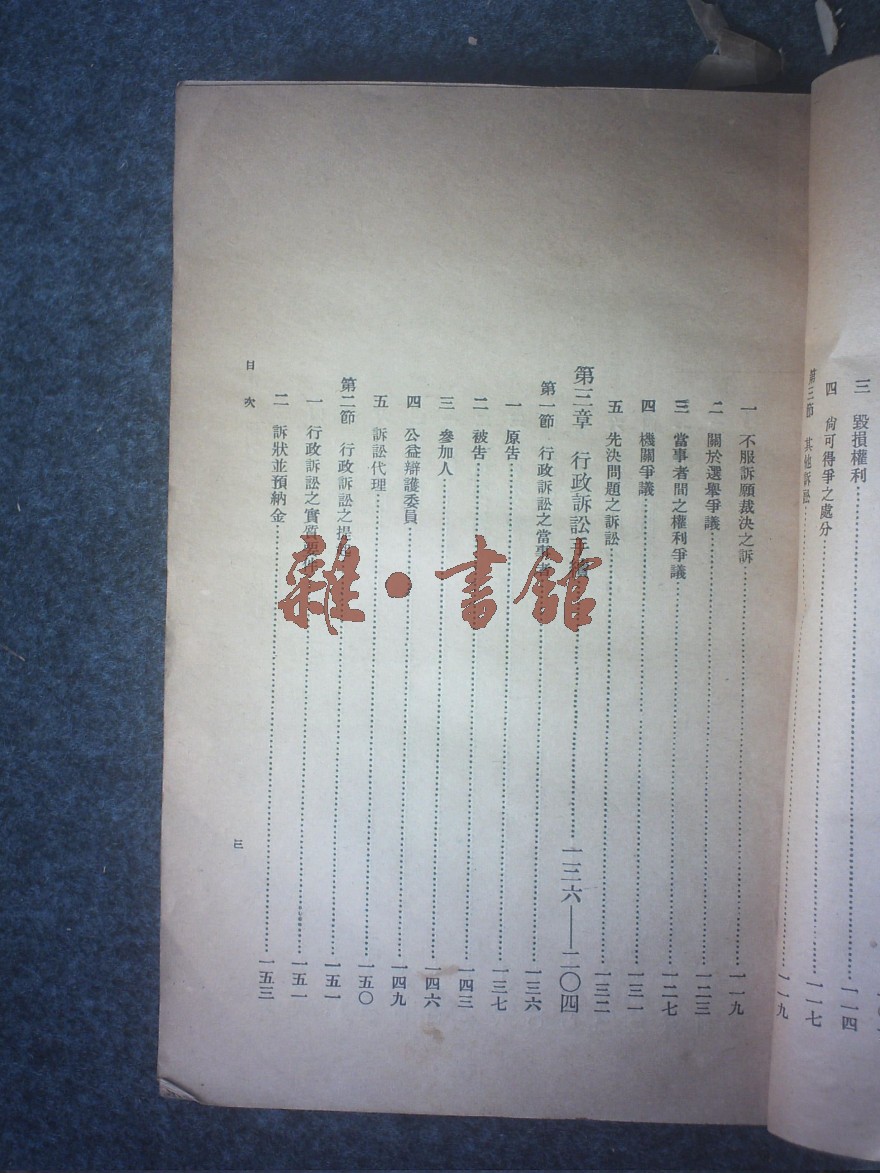 三 毀損權利……一一四
四 尙可得爭之處分……一一七
第三節 其他訴訟……一一九
一 不服訴願裁決之訴……一一九
二 關於選舉爭議……一二三
三 當事者間之權利爭議……一二七
四 機關爭議……一三一
五 先決問題之訴訟……一三二
第三章 行政訴訟手續……一三六——二〇四
第一節 行政訴訟之當事者……一三六
一 原告……一三七
二 被告……一四三
三 參加人……一四六
四 公益辯護委員……一四九
五 訴訟代理……一五〇
第二節 行政訴訟之提起……一五一
一 行政訴訟之實質要件……一五一
二 訴狀並預納金……一五三
目次
三
雜·書館